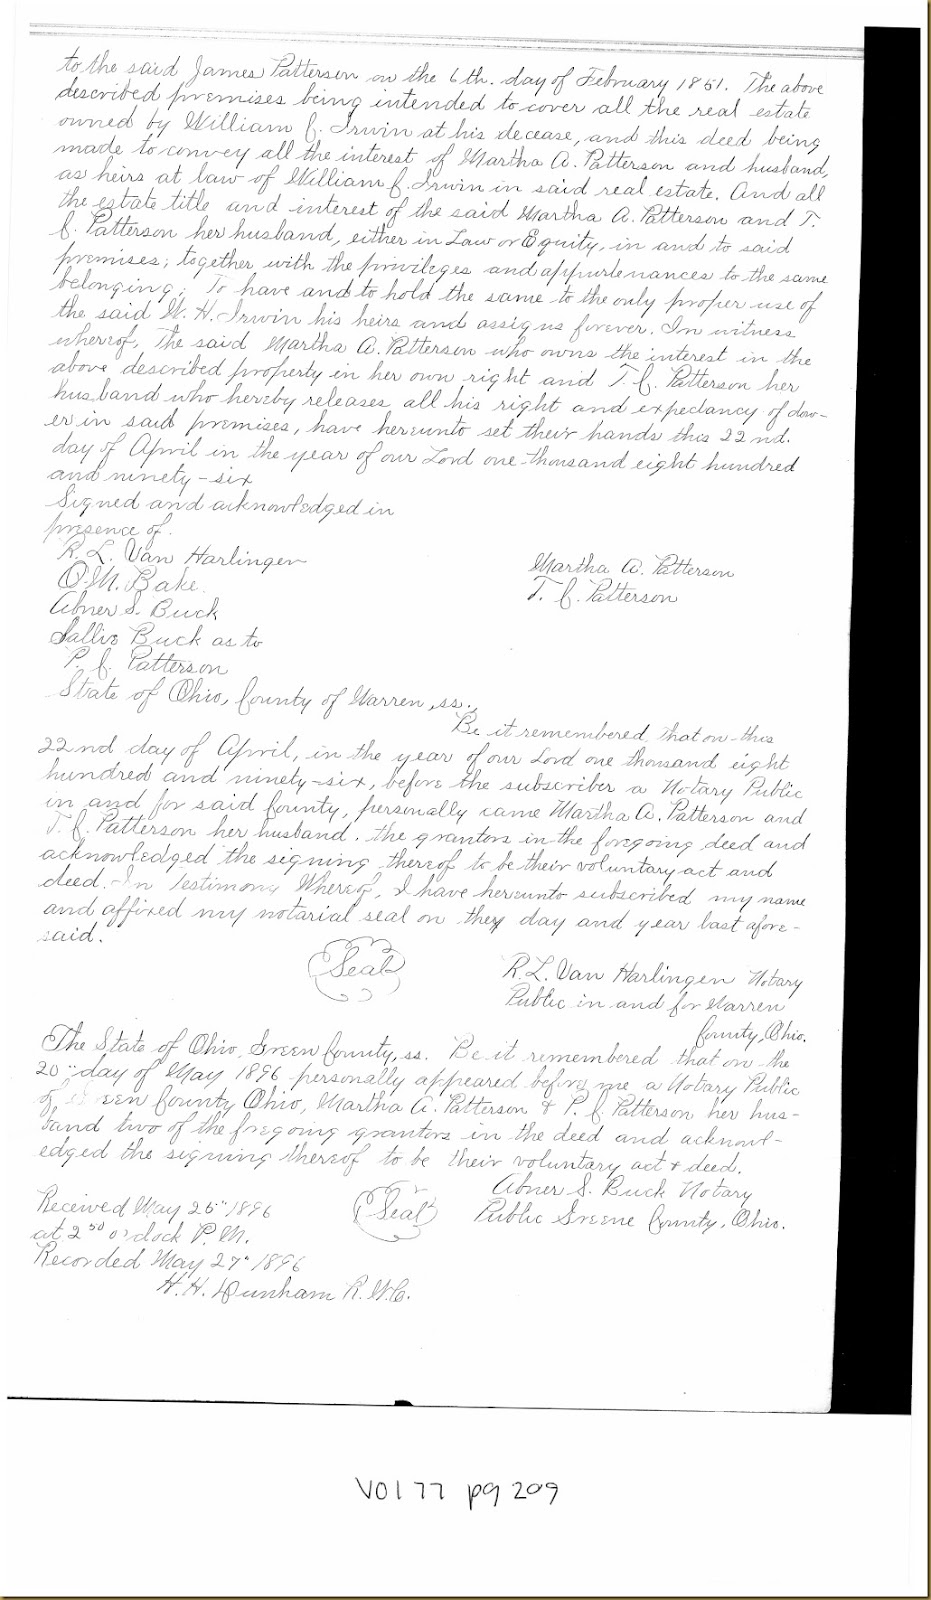 to the said James Patterson on the 6th. day of February 1851. The above
described premises being intended to cover all the real estate
owned by William C. Irwin at his decease, and this deed being
made to convey all the interest of Martha A. Patterson and husband,
as heirs at law of William C. Irwin in said real estate. And all
the estate title and interest of the said Martha A. Patterson and T.
C. Patterson her husband, either in Law or Equity, in and to said
premises; together with the privileges and appurtenances to the same
belonging; To have and to hold the same to the only proper use of
the said W. H. Irwin his heirs and assigns forever. In witness
whereof, the said Martha A. Patterson who owns the interest in the
above described property in her own right and T. C. Patterson her
husband who hereby releases all his right and expectancy of dow-
er in said premises, have hereunto set their hands this 22nd.
day of April in the year of our Lord one thousand eight hundred
and ninety-six
Signed and acknowledged in
presence of.
R. L. Van Harlingen
O. M. Bake.
Abner S. Buck
Sallie Buck as to
P. C. Patterson
Martha A. Patterson
T. C. Patterson
State of Ohio, County of Warren, ss.,
Be it remembered that on this
22nd day of April, in the year of our Lord one thousand eight
hundred and ninety-six, before the subscriber a Notary Public
in and for said County, personally came Martha A. Patterson and
T. C. Patterson her husband. the grantors in the foregoing deed and
acknowledged the signing thereof to be their voluntary act and
deed. In Testimony Whereof, I have hereunto subscribed my name
and affixed my notarial seal on they day and year last afore-
said.
Seal
R. L. Van Harlingen Notary
Public in and for Warren
County, Ohio.
The State of Ohio, Green County, ss. Be it remembered that on the
20" day of May 1896 personally appeared before me a Notary Public
of een County Ohio, Martha A. Patterson & P. C. Patterson her hus-
band two of the foregoing grantors in the deed and acknowl-
edged the signing thereof to be their voluntary act & deed.
Abner S. Buck Notary
Public Greene County, Ohio.
Seal
Received May 25" 1896
at 2 o'clock P.M.
Recorded May 27" 1896
H. H. Dunham R. W. C.
Vol 77 pg 209